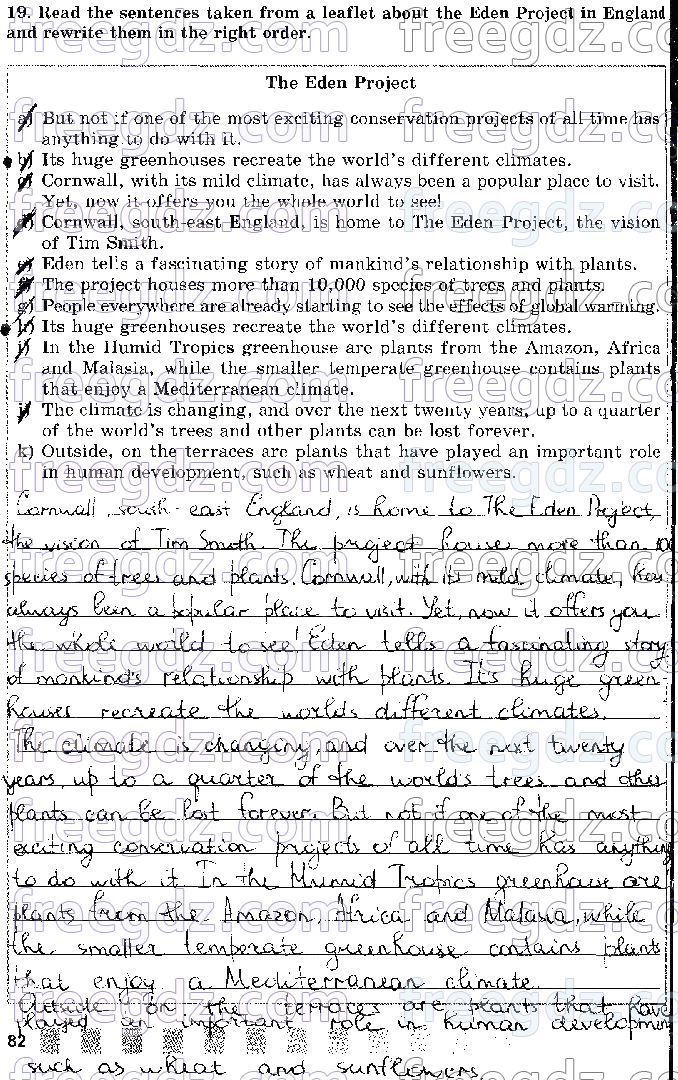 19. Read the sentences taken from a leaflet about the Eden Project in England
and rewrite them in the right order.
The Eden Project
a) But not if one of the most exciting conservation projects of all time has
anything to do with it.
b) Its huge greenhouses recreate the world's different climates.
c) Cornwall, with its mild climate, has always been a popular place to visit.
Yet, now it offers you the whole world to see!
d) Cornwall, south-east England, is home to The Eden Project, the vision
of Tim Smith.
e) Eden tells a fascinating story of mankind's relationship with plants.
f) The project houses more than 10,000 species of trees and plants.
g) People everywhere are already starting to see the effects of global warming.
h) Its huge greenhouses recreate the world's different climates.
i) In the Humid Tropics greenhouse are plants from the Amazon, Africa
and Malasia, while the smaller temperate greenhouse contains plants
that enjoy a Mediterranean climate.
j) The climate is changing, and over the next twenty years, up to a quarter
of the world's trees and other plants can be lost forever.
k) Outside, on the terraces are plants that have played an important role
in human development, such as wheat and sunflowers.
Cornwall, south-east England, is home to The Eden Project,
the vision of Tim Smith. The project houses more than
species of trees and plants. Cornwall, with its mild climate, has
always been a popular place to visit. Yet, now it offers you
the whole world to see! Eden tells a fascinating story
of mankind's relationship with plants. It's huge green-
houses recreate the world's different climates.
The climate is changing, and over the next twenty
years, up to a quarter of the world's trees and other
plants can be lost forever. But not if one of the most
exciting conservation projects of all time has anything
to do with it. In the Humid Tropics greenhouse are
plants from the Amazon, Africa and Malasia, while
the smaller temperate greenhouse contains plants
that enjoy a Mediterranean climate.
Outside on the terraces are plants that have
played an important role in human development
82
such as wheat and sunflowers.
freegdz.com